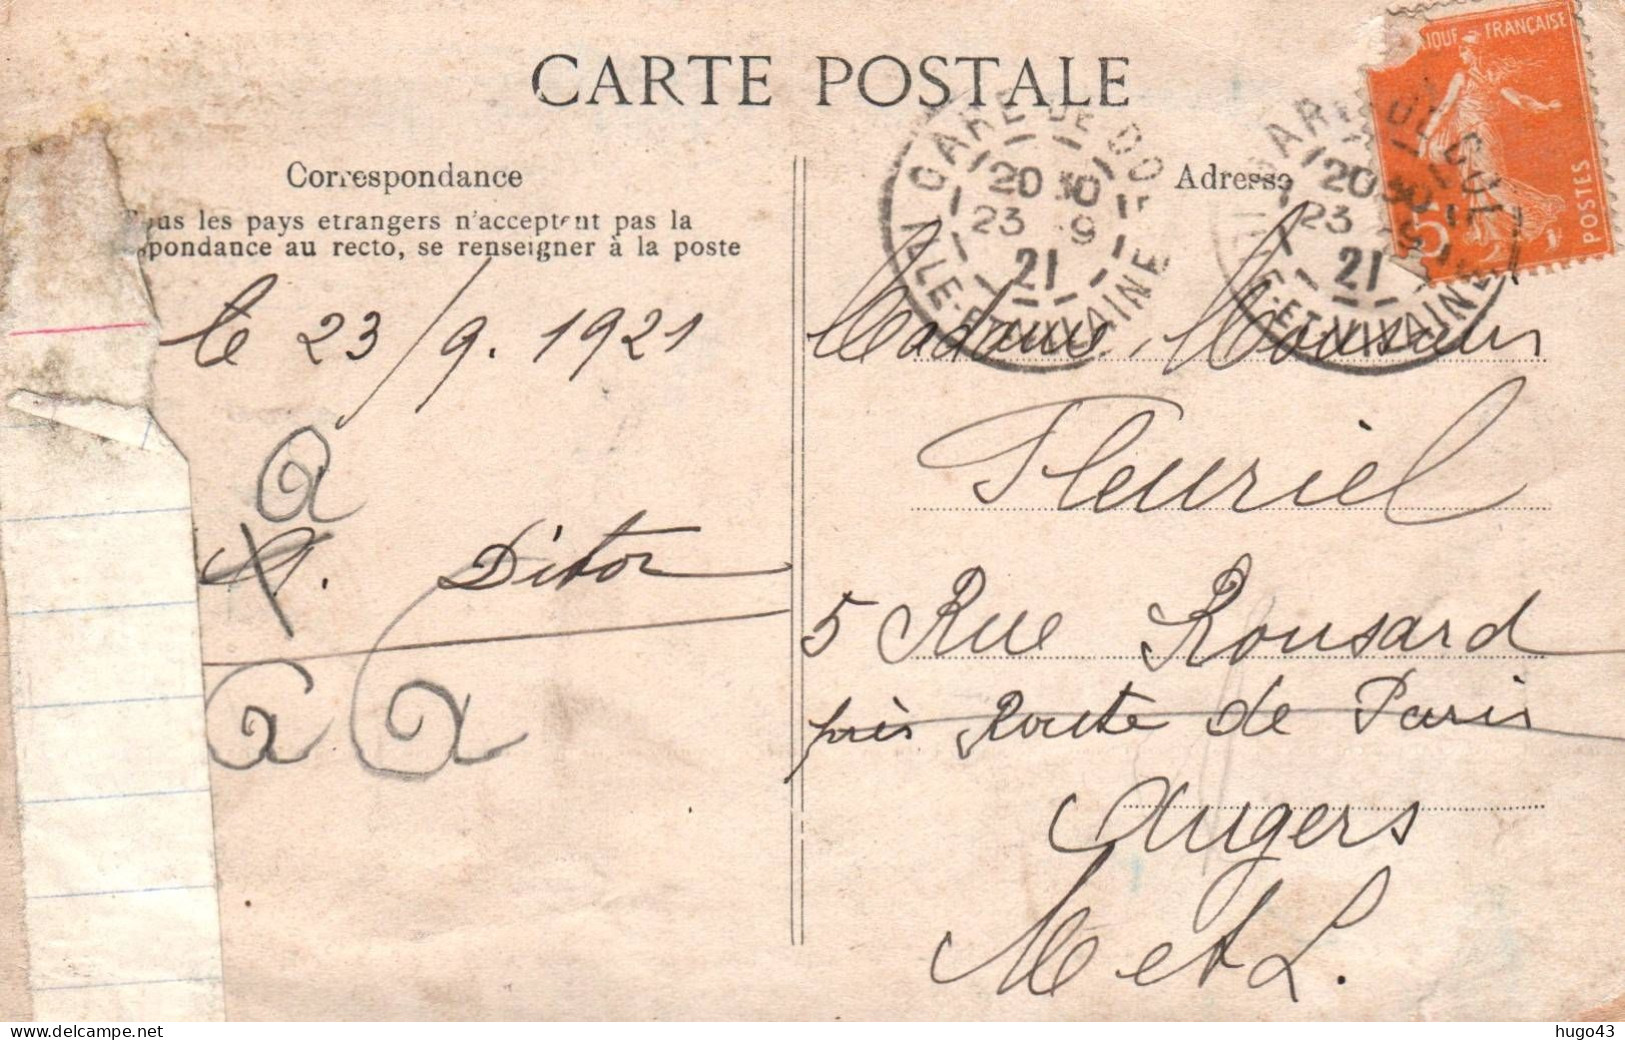 CARTE POSTALE
Correspondance
us les pays etrangers n'acceptent pas la
pondance au recto, se renseigner à la poste
le 23/9. 1921
a
Ditor
a a
Adresse
Madame, Monsieur
Fleuriel
5 Rue Ronsard
près Route de Paris
Angers
M et L.
GARE DE DOL
20 30
23 9
21
ILLE-ET-VILAINE
GARE DE DOL
20 30
23 9
21
ILLE-ET-VILAINE
IQUE FRANÇAISE
POSTES
5
hugo43
www.delcampe.net